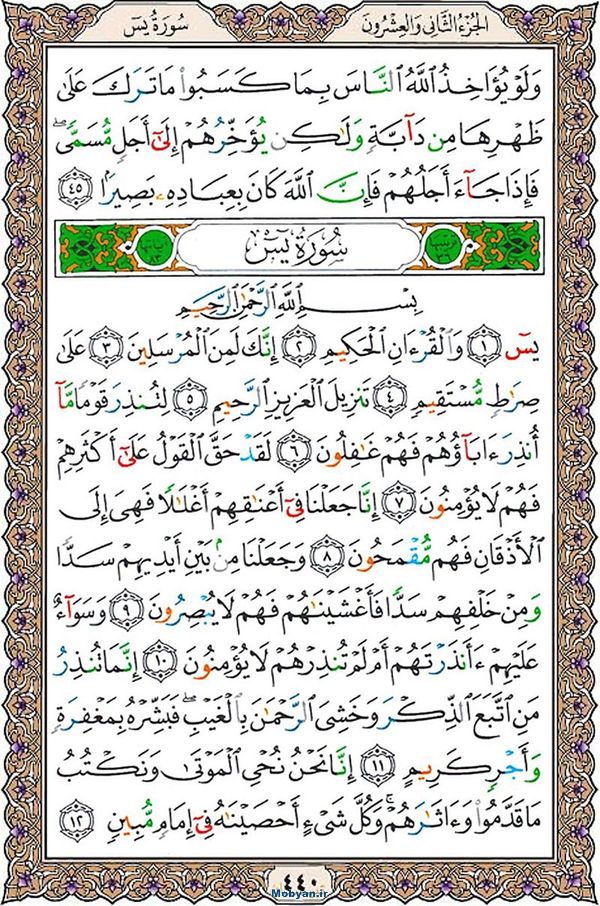 سُورَةُ يسٓ
الجُزءُ الثَّانِي وَالعِشرُونَ
وَلَوْ يُؤَاخِذُ ٱللَّهُ ٱلنَّاسَ بِمَا كَسَبُوا۟ مَا تَرَكَ عَلَىٰ
ظَهْرِهَا مِن دَآبَّةٍ وَلَٰكِن يُؤَخِّرُهُمْ إِلَىٰٓ أَجَلٍ مُّسَمًّى ۖ
فَإِذَا جَآءَ أَجَلُهُمْ فَإِنَّ ٱللَّهَ كَانَ بِعِبَادِهِۦ بَصِيرًۢا ٤٥
سُورَةُ يسٓ
بِسْمِ ٱللَّهِ ٱلرَّحْمَٰنِ ٱلرَّحِيمِ
يسٓ ١ وَٱلْقُرْءَانِ ٱلْحَكِيمِ ٢ إِنَّكَ لَمِنَ ٱلْمُرْسَلِينَ ٣ عَلَىٰ
صِرَٰطٍ مُّسْتَقِيمٍ ٤ تَنزِيلَ ٱلْعَزِيزِ ٱلرَّحِيمِ ٥ لِتُنذِرَ قَوْمًا مَّآ
أُنذِرَ ءَابَآؤُهُمْ فَهُمْ غَٰفِلُونَ ٦ لَقَدْ حَقَّ ٱلْقَوْلُ عَلَىٰٓ أَكْثَرِهِمْ
فَهُمْ لَا يُؤْمِنُونَ ٧ إِنَّا جَعَلْنَا فِىٓ أَعْنَٰقِهِمْ أَغْلَٰلًا فَهِىَ إِلَى
ٱلْأَذْقَانِ فَهُم مُّقْمَحُونَ ٨ وَجَعَلْنَا مِنۢ بَيْنِ أَيْدِيهِمْ سَدًّا
وَمِنْ خَلْفِهِمْ سَدًّا فَأَغْشَيْنَٰهُمْ فَهُمْ لَا يُبْصِرُونَ ٩ وَسَوَآءٌ
عَلَيْهِمْ ءَأَنذَرْتَهُمْ أَمْ لَمْ تُنذِرْهُمْ لَا يُؤْمِنُونَ ١٠ إِنَّمَا تُنذِرُ
مَنِ ٱتَّبَعَ ٱلذِّكْرَ وَخَشِىَ ٱلرَّحْمَٰنَ بِٱلْغَيْبِ ۖ فَبَشِّرْهُ بِمَغْفِرَةٍ
وَأَجْرٍ كَرِيمٍ ١١ إِنَّا نَحْنُ نُحْىِ ٱلْمَوْتَىٰ وَنَكْتُبُ
مَا قَدَّمُوا۟ وَءَاثَٰرَهُمْ ۚ وَكُلَّ شَىْءٍ أَحْصَيْنَٰهُ فِىٓ إِمَامٍ مُّبِينٍ ١٢
٤٤٠
Mobyan.ir